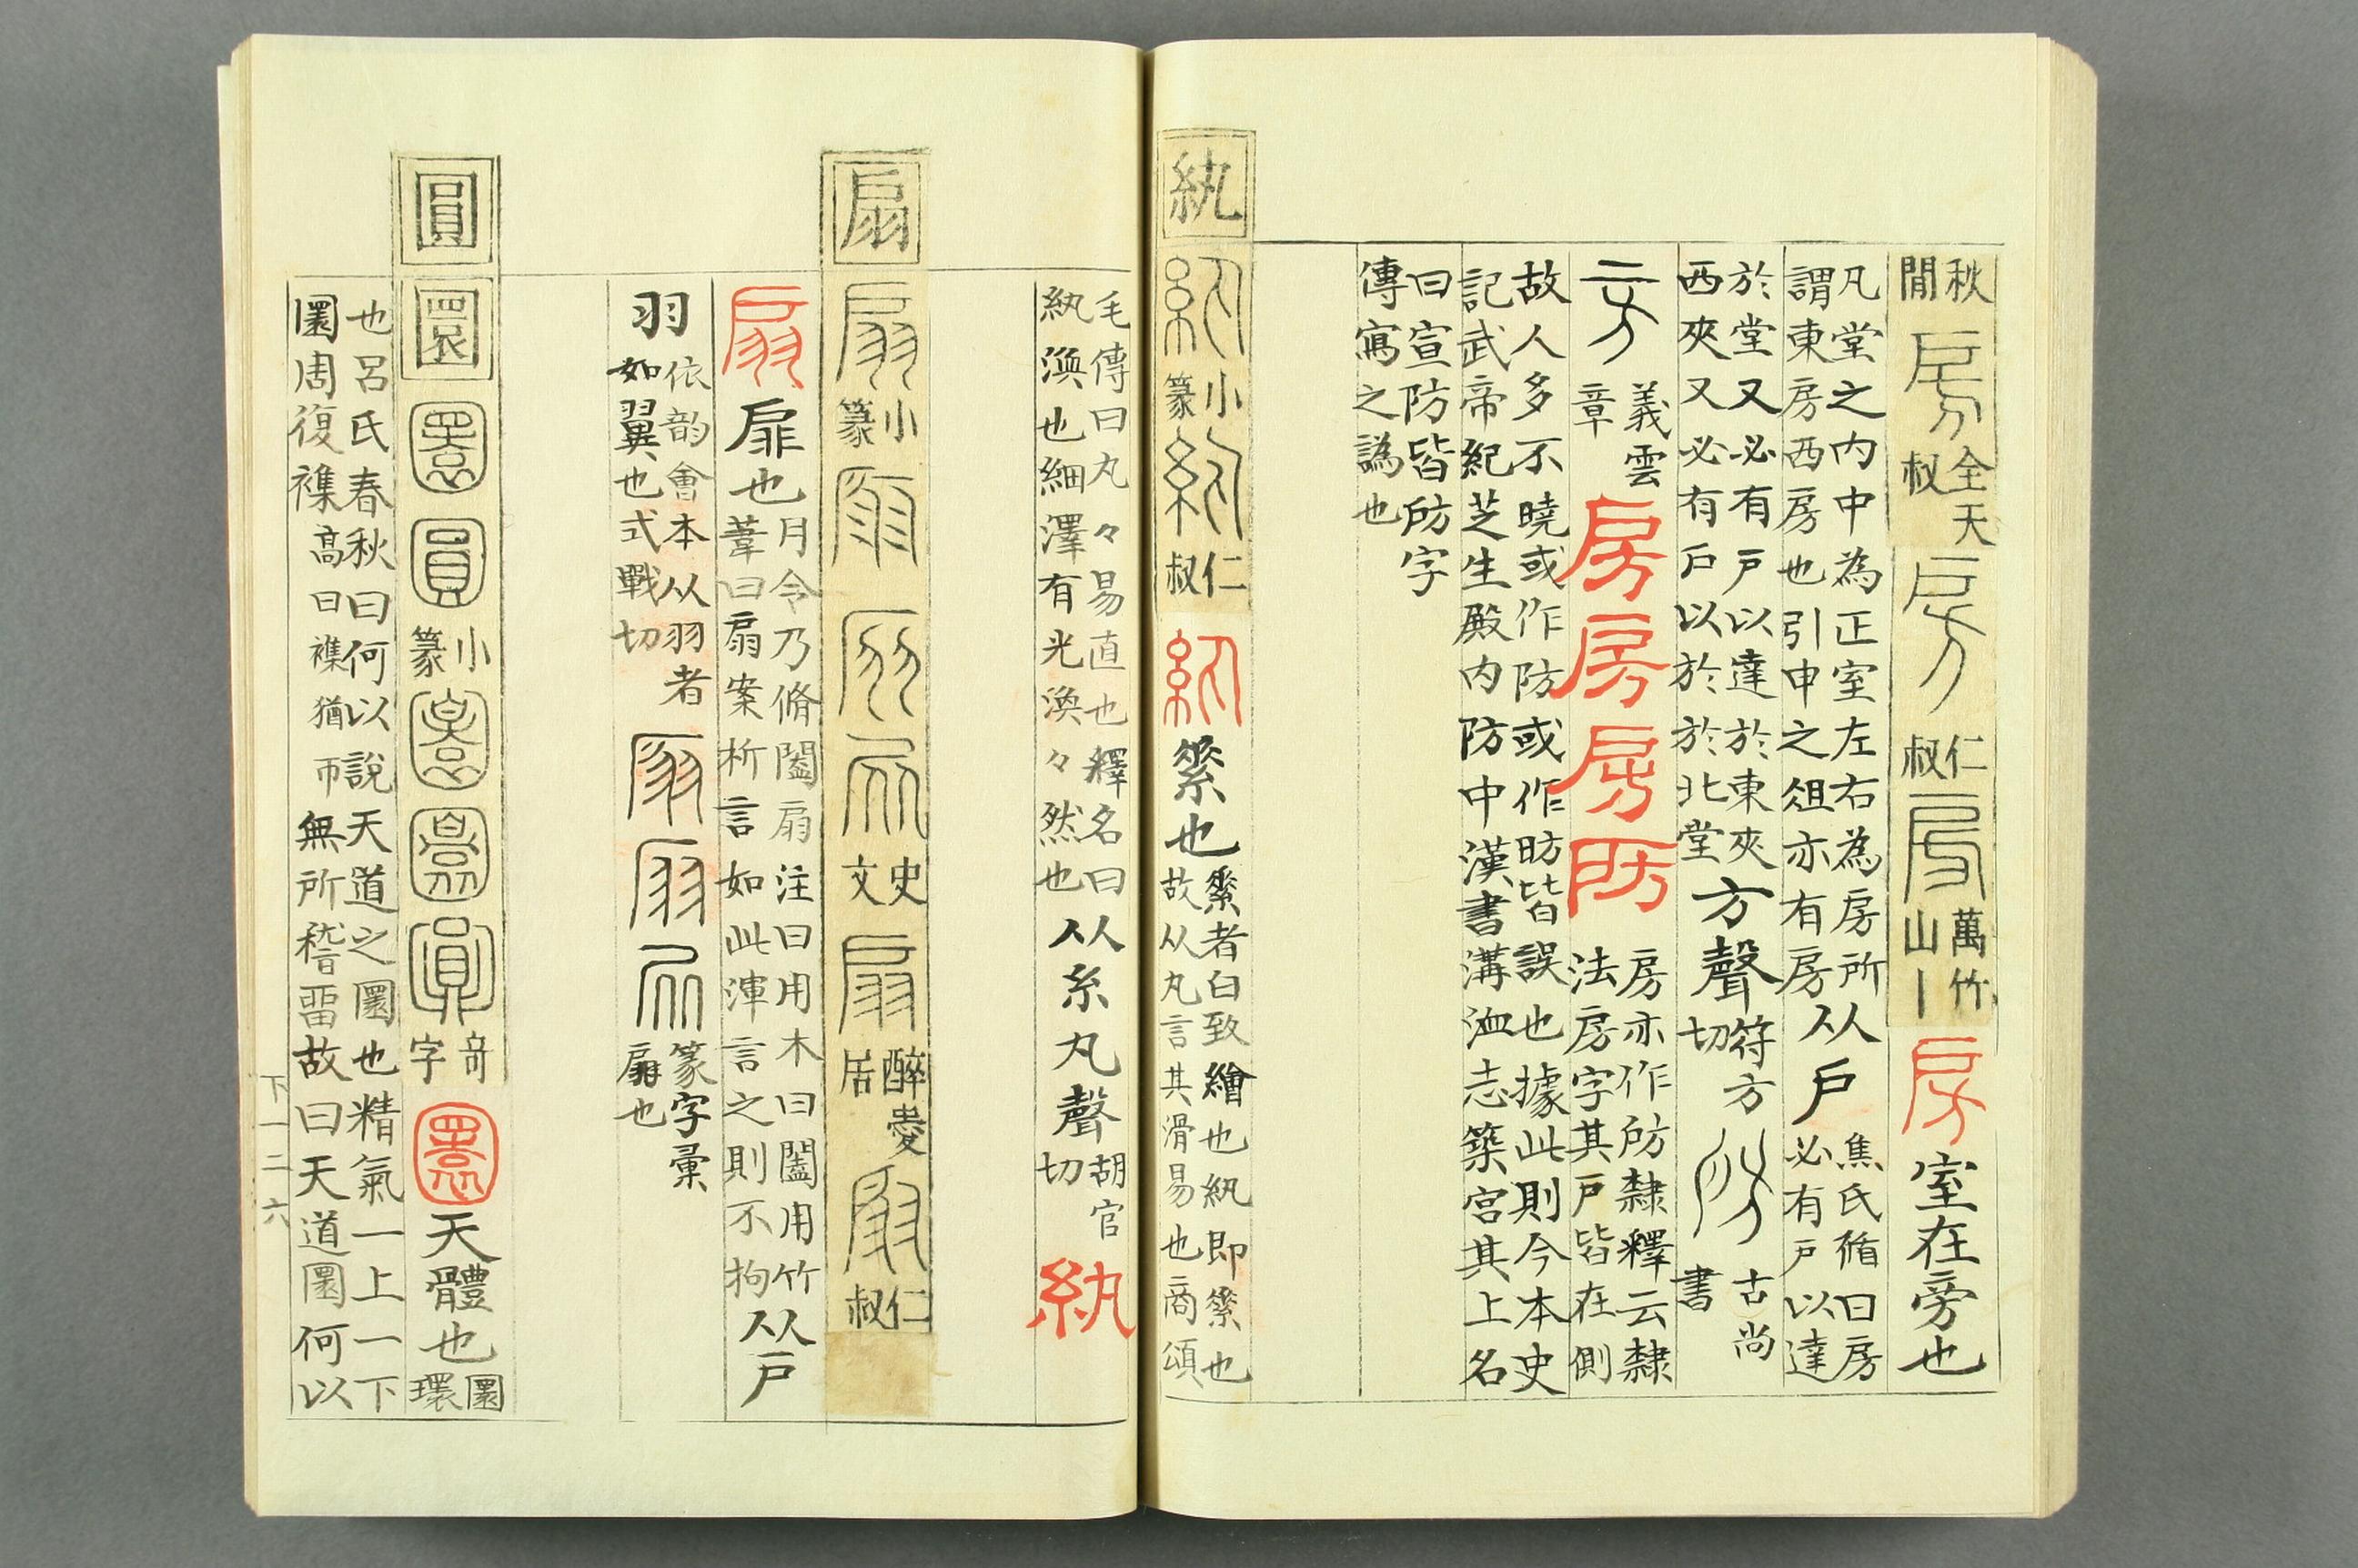 秋閒房全天叔房仁叔房萬竹山丨房室在旁也
凡堂之内中為正室左右為房所
謂東房西房也引申之俎亦有房
从户
焦氏循曰房
必有户以達
於堂又必有户以達於東夾
西夾又必有户以於於北堂
方聲
符方
切
古尚
書
義雲
章
房房房防
房亦作防隸釋云隸
法房字其户皆在側
故人多不曉或作防或作昉皆誤也據此則今本史
記武帝紀芝生殿内防中漢書溝洫志築宫其上名
曰宣防皆防字
傳寫之譌也
紈
紈小篆紈仁叔紈縏也
縏者白致繒也紈即縏也
故从丸言其滑易也商頌
毛傳曰丸々易直也釋名曰
紈渙也細澤有光渙々然也
从糸丸聲
胡官
切
紈
扇
扇小篆扇扇扇史文扇醉愛居扇仁叔
扇扉也
月令乃脩闔扇注曰用木曰闔用竹
葦曰扇案析言如此渾言之則不拘
从户
羽
依韵會本从羽者
如翼也式戰切
扇扇扇
篆字彙
扇也
圓
圜圜圓小篆圜圜圓奇字圜天體也
圜
環
也呂氏春秋曰何以說天道之圜也精氣一上一下
圜周復襍高曰襍猶帀無所稽畱故曰天道圜何以
下一二六